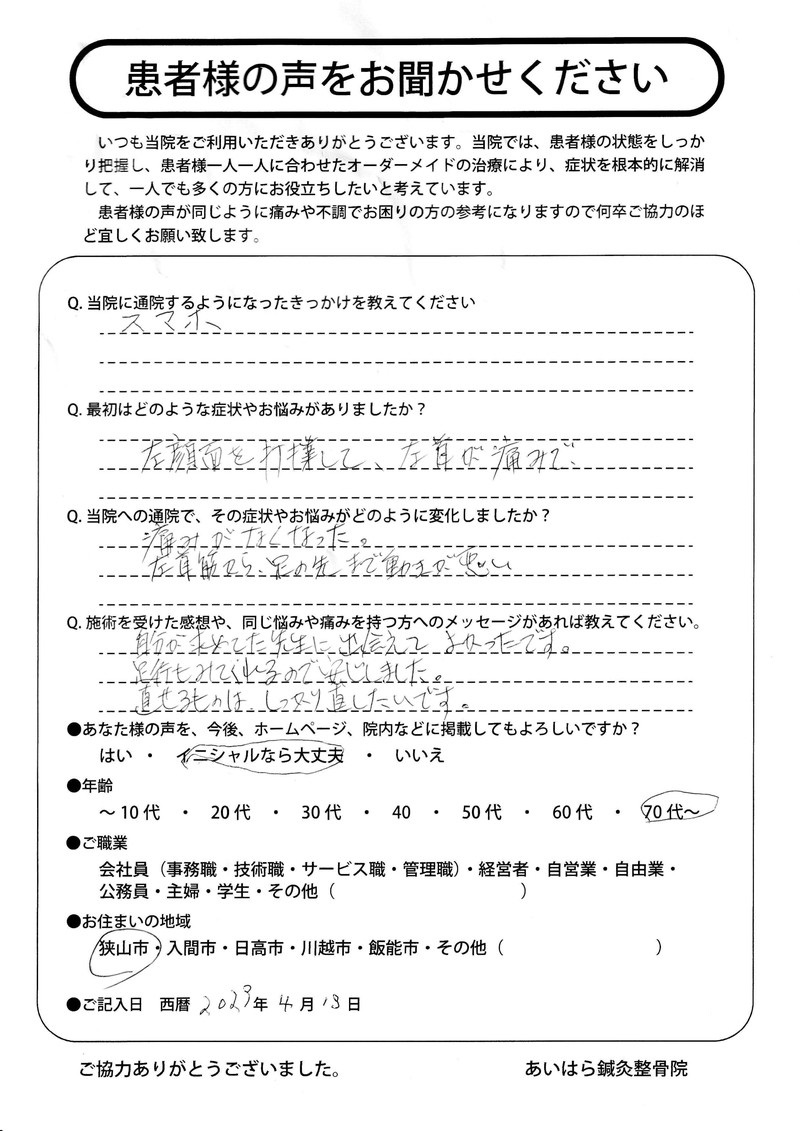 患者様の声をお聞かせください
いつも当院をご利用いただきありがとうございます。当院では、患者様の状態をしっか
り把握し、患者様一人一人に合わせたオーダーメイドの治療により、症状を根本的に解消
して、一人でも多くの方にお役立ちしたいと考えています。
患者様の声が同じように痛みや不調でお困りの方の参考になりますので何卒ご協力のほ
ど宜しくお願い致します。
Q. 当院に通院するようになったきっかけを教えてください
スマホ
Q. 最初はどのような症状やお悩みがありましたか？
左顔面を打撲して、左首が痛みで、
Q. 当院への通院で、その症状やお悩みがどのように変化しましたか？
痛みがなくなった。
左首筋から、足の先まで動きが悪い
Q. 施術を受けた感想や、同じ悩みや痛みを持つ方へのメッセージがあれば教えてください。
自分が求めてた先生に出会えてよかったです。
足行もみてくれるので安心しました。
直せるものは、しっかり直したいです。
●あなた様の声を、今後、ホームページ、院内などに掲載してもよろしいですか？
はい ・ イニシャルなら大丈夫 ・ いいえ
●年齢
～10代 ・ 20代 ・ 30代 ・ 40 ・ 50代 ・ 60代 ・ 70代～
●ご職業
会社員（事務職・技術職・サービス職・管理職）・経営者・自営業・自由業・
公務員・主婦・学生・その他（ ）
●お住まいの地域
狭山市・入間市・日高市・川越市・飯能市・その他（ ）
●ご記入日 西暦 2023年 4月 13日
ご協力ありがとうございました。 あいはら鍼灸整骨院